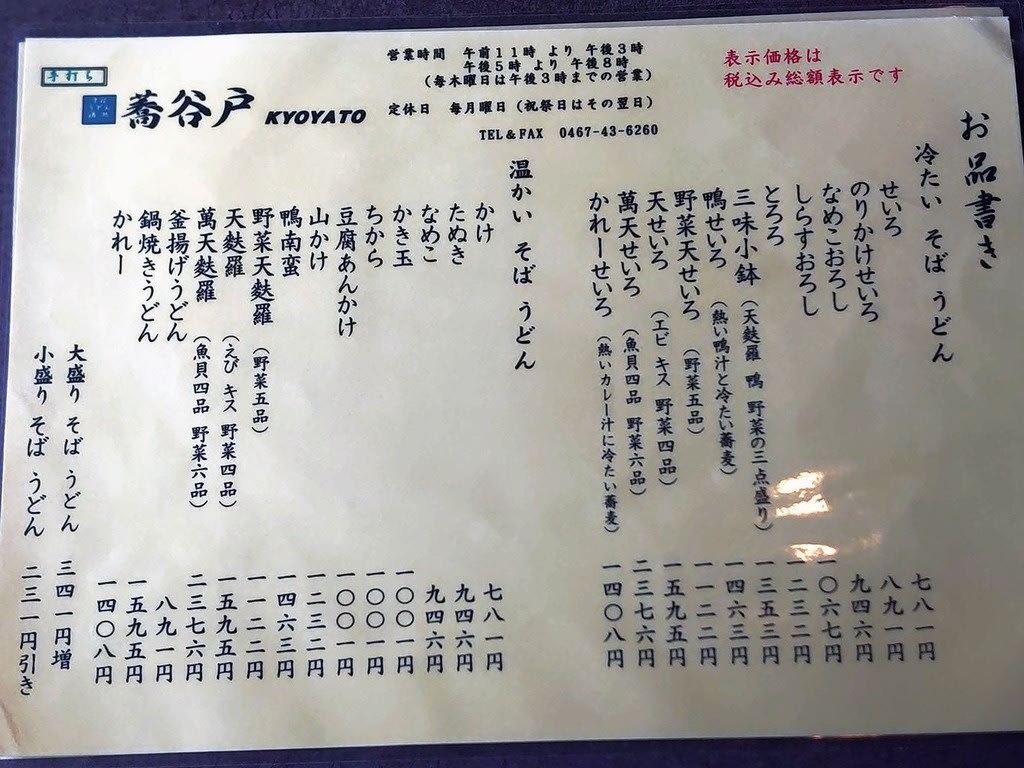 手打ち
蕎谷戸 KYOYATO
営業時間 午前11時 より 午後3時
午後5時 より 午後8時
(毎木曜日は午後3時までの営業)
定休日 毎月曜日(祝祭日はその翌日)
TEL&FAX 0467-43-6260
表示価格は
税込み総額表示です
お品書き
冷たい そば うどん
せいろ 七八一円
のりかけせいろ 八九一円
なめこおろし 九四六円
しらすおろし 一〇六七円
とろろ 一二三二円
三味小鉢 (天麩羅 鴨 野菜の三点盛り) 一三五三円
鴨せいろ (熱い鴨汁と冷たい蕎麦) 一四六三円
野菜天せいろ (野菜五品) 一一二二円
天せいろ (エビ キス 野菜四品) 一五九五円
萬天せいろ (魚貝四品 野菜六品) 二三七六円
かれーせいろ (熱いカレー汁に冷たい蕎麦) 一四〇八円
温かい そば うどん
かけ 七八一円
たぬき 九四六円
なめこ 九四六円
かき玉 一〇〇一円
ちから 一〇〇一円
豆腐あんかけ 一〇〇一円
山かけ 一二三二円
鴨南蛮 一四六三円
野菜天麩羅 (野菜五品) 一一二二円
天麩羅 (えび キス 野菜四品) 一五九五円
萬天麩羅 (魚貝四品 野菜六品) 二三七六円
釜揚げうどん 八九一円
鍋焼きうどん 一五九五円
かれー 一四〇八円
大盛り そば うどん 三四一円増
小盛り そば うどん 二三一円引き